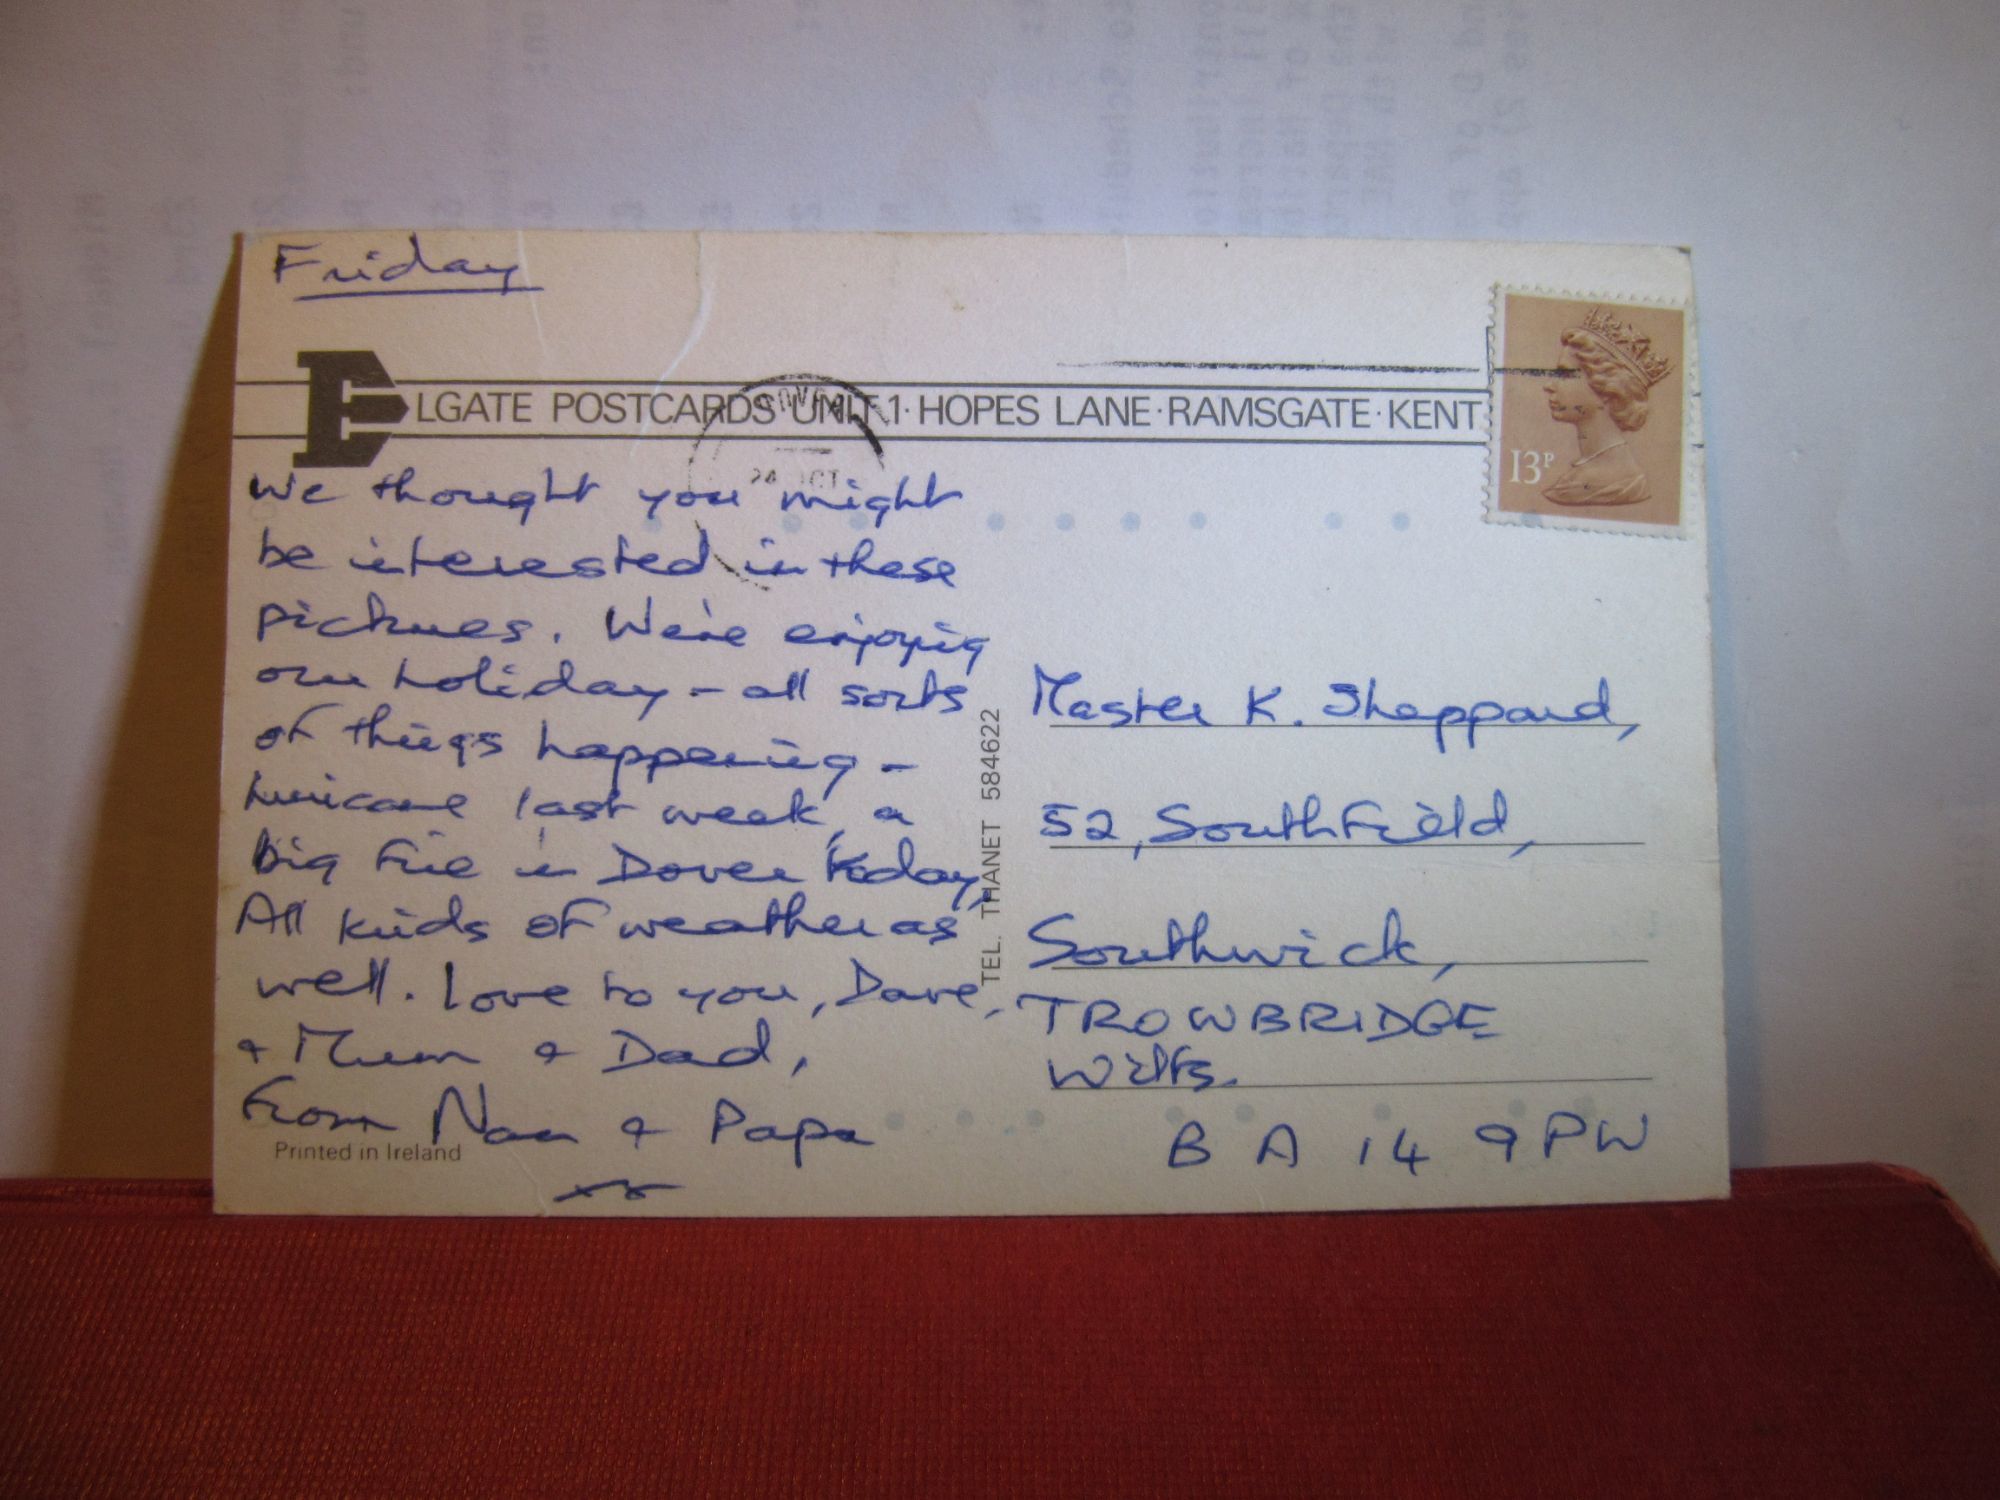 Friday
ELGATE POSTCARDS UNIT 1 · HOPES LANE · RAMSGATE · KENT
13P
24 OCT
We thought you might
be interested in these
pictures. We're enjoying
our holiday - all sorts
of things happening -
hurricane last week, a
big fire in Dover today,
All kinds of weather as
well. Love to you, Dave,
+ Mum + Dad,
From Nan + Papa
Printed in Ireland
TEL. THANET 584622
Master K. Sheppard,
52, Southfield,
Southwick,
TROWBRIDGE
Wilts.
BA14 9PW